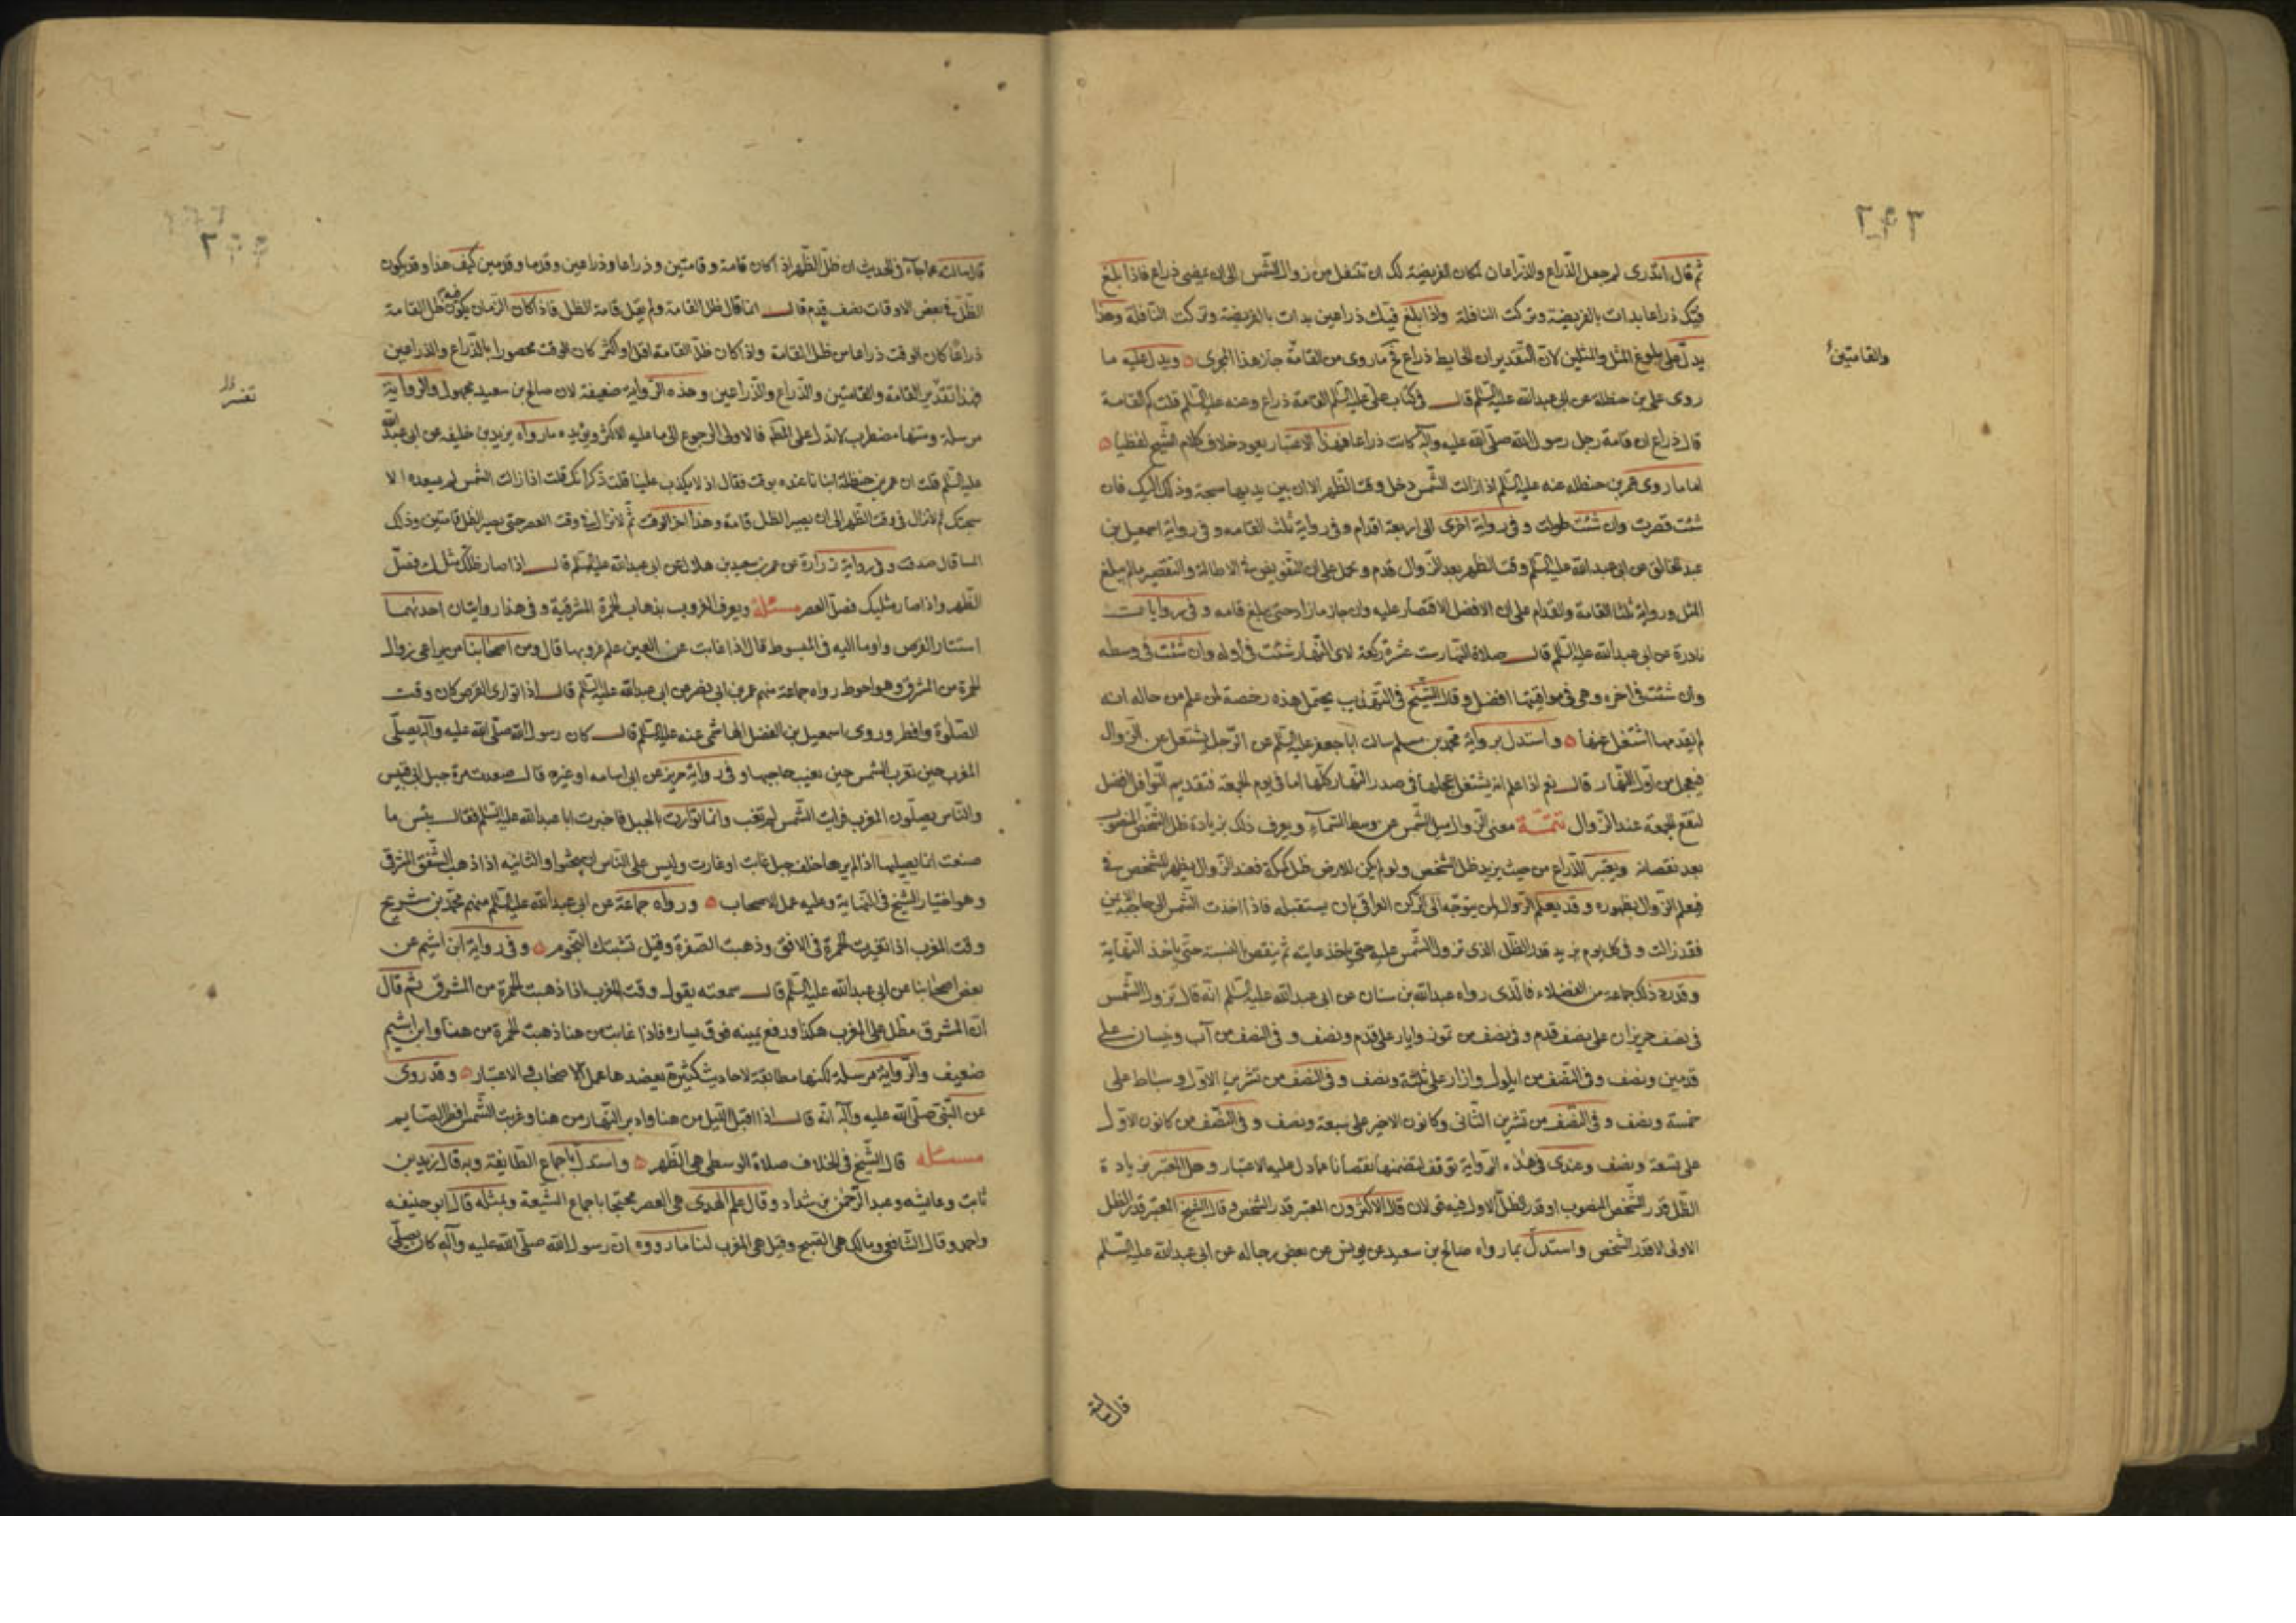 ٢٩٣
ثم قال اتدرى لم جعل الذراع والذراعان لمكان الفريضة لك ان تتنفل من زوال الشمس الى ان يمضى ذراع فاذا بلغ
فيئك ذراعا بدات بالفريضة وتركت النافلة واذا بلغ فيئك ذراعين بدات بالفريضة وتركت النافلة وهذا
يدل على بلوغ المثل والمثلين لان التقدير ان الحايط ذراع فح ماروى من القامة جاز هذا المجرى ويدل عليه ما
والقامتين
روى على بن حنظلة عن ابى عبدالله عليه السلم قال فى كتاب على عليه السلم القامة ذراع وعنه عليه السلم قلت كم القامة
قال ذراع ان قامة رجل رسول الله صلى الله عليه وآله كانت ذراعا فبهذا الاعتبار يعود خلاف كلام الشيخ لفظيا
اما ماروى عمر بن حنظله عنه عليه السلم اذا زالت الشمس دخل وقت الظهر الا ان بين يديها سبحة وذلك اليك فان
شئت قصرت وان شئت طولت وفى رواية اخرى الى اربعة اقدام وفى رواية ثلث القامه وفى رواية اسمعيل بن
عبد الخالق عن ابى عبدالله عليه السلم وقت الظهر بعد الزوال قدم وعمل على ان التفويض فى الاطالة والتقصير مالم يبلغ
المثل ورواية ثلثا القامة والقدام على ان الافضل الاقتصار عليه وان جاز مازاد حتى يبلغ قامه وفى روايات
نادرة عن ابى عبدالله عليه السلم قال صلاة النهار ست عشرة ركعة لاى النهار شئت فى أوله وان شئت فى وسطه
وان شئت فى اخره وهى فى مواقيتها افضل وقال الشيخ فى التهذيب يحتمل هذه رخصة لمن علم من حاله انه
لم يقدمها اشتغل عنها واستدل برواية محمد بن مسلم سالت ابا جعفر عليه السلم عن الرجل يشتغل عن الزوال
فيعجل من اول النهار قال نعم اذا علم انه يشتغل عجلها فى صدر النهار كلها اما فى يوم الجمعة فتقديم النوافل افضل
لتقع الجمعة عند الزوال تتمة معنى الزوال ميل الشمس عن وسط السماء ويعرف ذلك بزيادة ظل الشخص المنصوب
بعد نقصانه ويعتبر الذراع من حيث يزيد ظل الشخص ولو لم يكن للارض ظل كمكة فعند الزوال يظهر للشخص فئ
فيعلم الزوال بظهوره وقد يعلم الزوال لمن يتوجه الى الركن العراقى بان يستقبله فاذا اخذت الشمس الى حاجبه الايمن
فقد زالت وفى كل يوم يزيد قدر الظل الذى تزول الشمس عليه حتى ياخذ غايته ثم ينقص بالنسبة حتى ياخذ النهاية
وقدره ذلك جماعة من الفضلاء فالذى رواه عبدالله بن سنان عن ابى عبدالله عليه السلم انه قال تزول الشمس
فى نصف حزيران على نصف قدم وفى نصف من تموز وايار على قدم ونصف وفى النصف من آب ونيسان على
قدمين ونصف وفى النصف من ايلول وازار على ثلثة ونصف وفى النصف من تشرين الاول و سباط على
خمسة ونصف وفى النصف من تشرين الثانى وكانون الاخير على سبعة ونصف وفى النصف من كانون الاول
على تسعة ونصف وعندى فى هذه الرواية توقف لتضمنها نقصانا عما دل عليه الاعتبار وهل المعتبر بزيادة
الظل قدر الشخص المنصوب او قدر الظل الاول فيه قولان قال الاكثرون المعتبر قدر الشخص وقال الشيخ المعتبر قدر الظل
الاولى لا قدر الشخص واستدل بما رواه صالح بن سعيد عن يونس عن بعض رجاله عن ابى عبدالله عليه السلم
قال سالته
قال سالته عما جاء فى الحديث ان ظل الظهر اذا كان قامة وقامتين وذراعا وذراعين وقدما وقدمين كيف هذا وقد يكون
الظل فى بعض الاوقات نصف قدم قال انما قال ظل القامة ولم يقل قامة الظل فاذا كان الزمان يكون فيه ظل القامة
ذراعا كان الوقت ذراعا من ظل القامة واذا كان ظل القامة اقل او اكثر كان الوقت محصورا بالذراع والذراعين
فهذا تقدير القامة والقامتين والذراع والذراعين وهذه الرواية ضعيفة لان صالح بن سعيد مجهول والرواية
مرسلة ومتنها مضطرب لاتدل على المطلـ فالاولى الرجوع الى ما عليه الاكثر ويؤيده مارواه يزيد بن خليفه عن ابى عبد الله
عليه السلم قلت ان عمر بن حنظلة انبانا عنده بوقت فقال اذ لا يكذب علينا قلت ذكر انك قلت اذا زالت الشمس لم يمنعك الا
سبحتك ثم لاتزال فى وقت الظهر الى ان يصير الظل قامة وهذا اخر الوقت ثم لاتزال فى وقت العصر حتى يصير الظل قامتين وذلك
المسا قال صدقت وفى رواية زرارة عن عمر بن سعيد بن هلال عن ابى عبدالله عليه السلم قال اذا صار ظلك مثلك فصل
الظهر واذا صار مثليك فصل العصر مسئلة ويعرف الغروب بذهاب الحمرة المشرقية وفى هذا روايتان احدیهما
استتار القرص واوما اليه فى المبسوط قال اذا غابت عن العين علم غروبها قال ومن اصحابنا من يراعى زوال
الحمرة من المشرق وهو احوط رواه جماعة منهم عمر بن ابى نصر عن ابى عبدالله عليه السلم قال اذا توارى القرص كان وقت
الصلوة وافطر وروى اسمعيل بن الفضل الهاشمى عنه عليه السلم قال كان رسول الله صلى الله عليه وآله يصلى
المغرب حين تغرب الشمس حين يغيب حاجبها وفى رواية حريز عن ابى اسامه او غيره قال صعدت مرة جبل ابى قبيس
والناس يصلون المغرب فرايت الشمس لم تغب وانما توارت بالجبل فاخبرت ابا عبدالله عليه السلم فقال بئس ما
صنعت انما يصليها اذا لم يرها خلف جبل غابت او غارت وليس على الناس ان يبحثوا والثانيه اذا ذهب الشفق المشرقى
وهو اختيار الشيخ فى النهاية وعليه عمل الاصحاب ورواه جماعة عن ابى عبدالله عليه السلم منهم محمد بن شريح
وقت المغرب اذا تغيرت الحمرة فى الافق وذهبت الصفرة وقبل تشبتك النجوم وفى رواية ابن اشيم عن
بعض اصحابنا عن ابى عبدالله عليه السلم قال سمعته يقول وقت المغرب اذا ذهبت الحمرة من المشرق ثم قال
ان المشرق مظل على المغرب هكذا ورفع يمينه فوق يساره فاذا غابت من هنا ذهبت الحمرة من هنا وابن اشيم
ضعيف والرواية مرسلة لكنها مطابقة لاحاديث كثيرة يعضدها عمل الاصحاب والاعتبار وقد روى
عن النبى صلى الله عليه وآله انه قال اذا اقبل الليل من هنا وادبر النهار من هنا وغربت الشمس افطر الصايم
مسئله قال الشيخ فى الخلاف صلاة الوسطى هى الظهر واستدل باجماع الطائفة وبه قال زيد بن
ثابت وعايشه وعبد الرحمن بن شداد وقال علم الهدى هى العصر محتجا باجماع الشيعة وبمثله قال ابو حنيفه
واحمد وقال الشافعى ومالك هى الصبح وقيل هى المغرب لنا مارووه ان رسول الله صلى الله عليه وآله كان يصلى